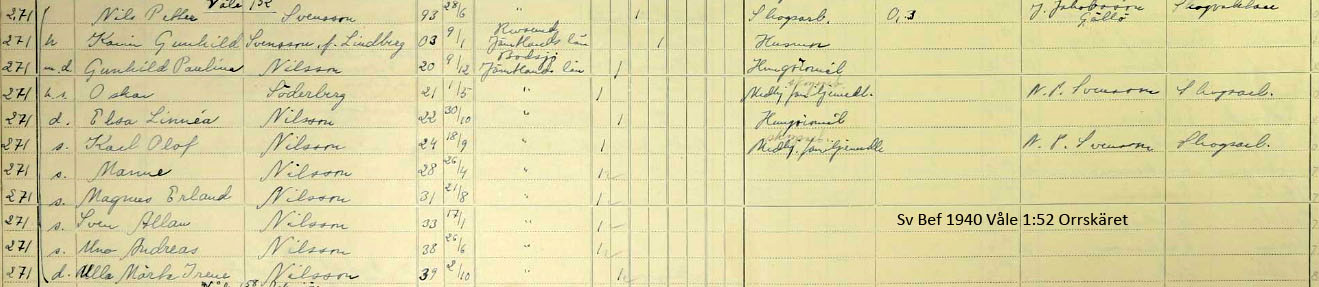 Våle 1:52
271 Nils Petter Svensson 93 28/6 " 1 Skogsarb. 0,3 J. Jakobsson Gällö
271 h Karin Gunhild Svensson, f. Lindberg 03 9/1 Revsund Jämtlands län 1 Husmor
271 u.d. Gunhild Paulina Nilsson 20 9/12 Bodsjö Jämtlands län 1 Hemgöromål
271 Oskar Söderberg 21 1/5 " 1 Medhj. familjemedl. N. P. Svensson Skogsarb.
271 d. Elsa Linnéa Nilsson 22 30/10 " 1 Hemgöromål
271 s. Karl Olof Nilsson 24 18/9 " 1 Medhj. familjemedl N. P. Svensson Skogsarb.
271 s. Manne Nilsson 28 26/4 " 1
271 s. Magnus Erland Nilsson 31 21/8 " 1
271 s. Sven Allan Nilsson 33 17/1 " 1
271 s. Uno Andreas Nilsson 38 26/6 " 1
271 d. Ulla Märta Irene Nilsson 39 2/10 " 1
Sv Bef 1940 Våle 1:52 Orrskäret